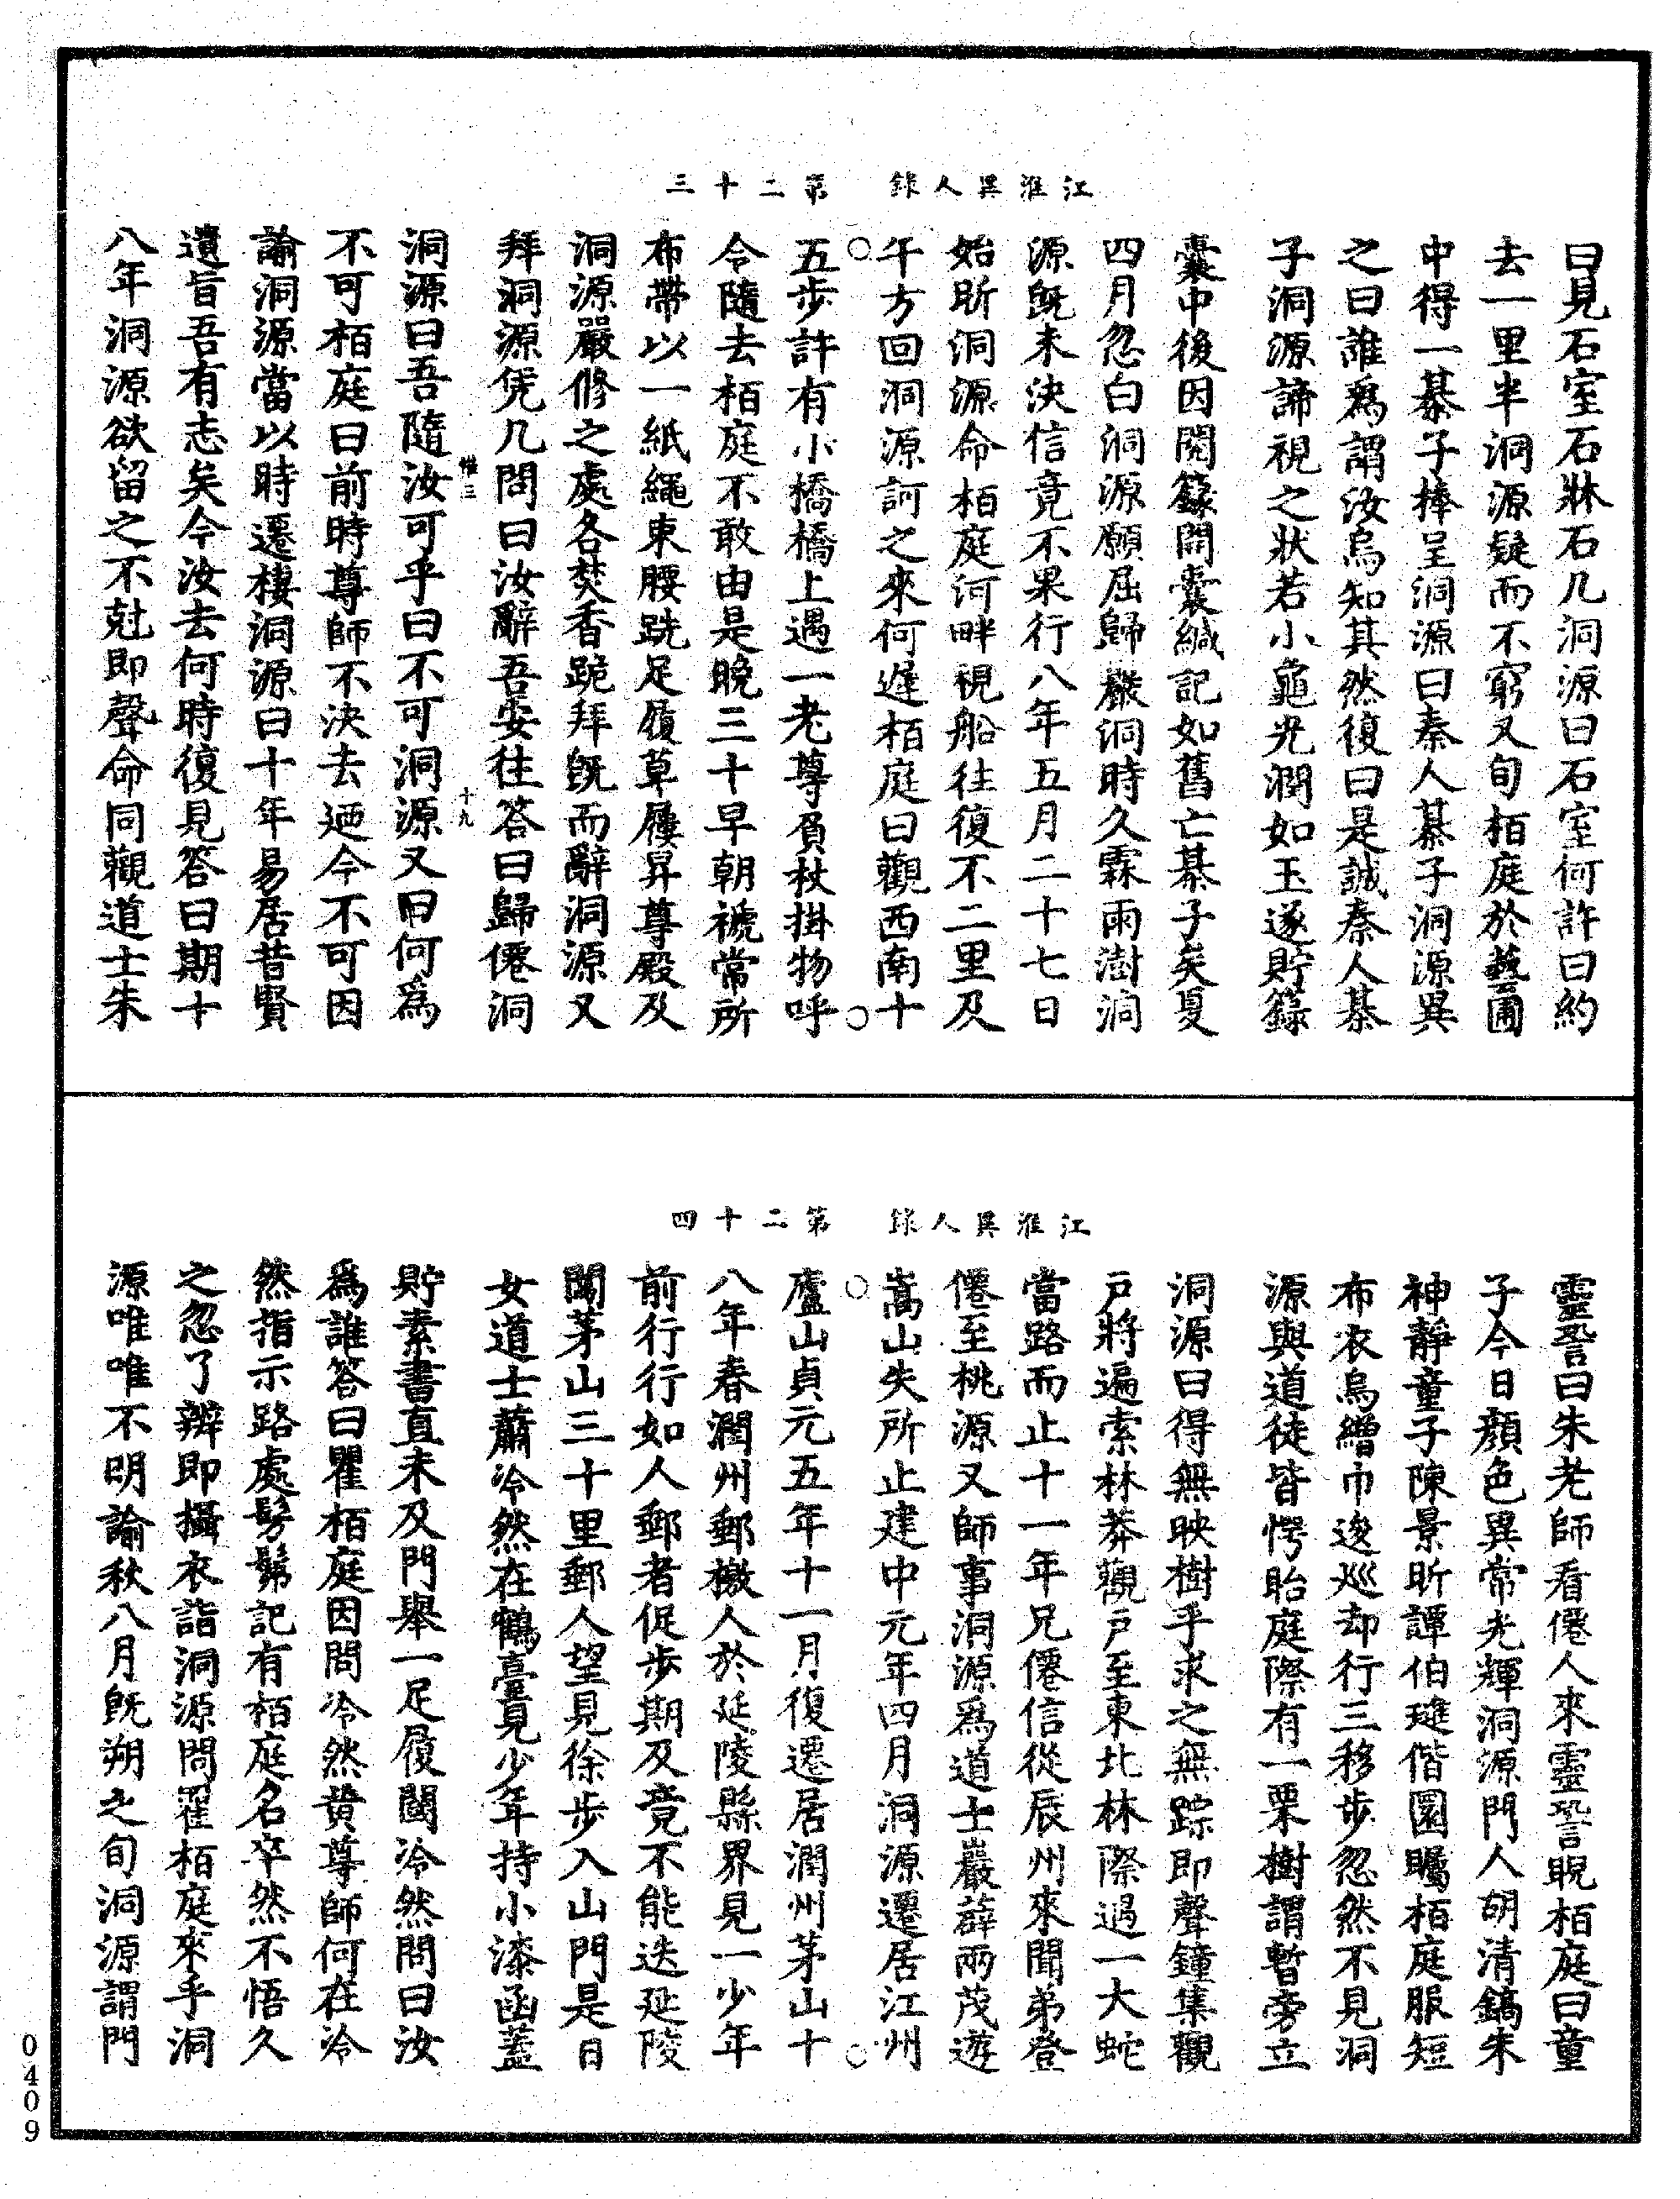 江淮異人錄　第二十三
曰見石室石牀石几洞源曰石室何許曰約
去一里半洞源疑而不窮又旬栢庭於藝圃
中得一棊子捧呈洞源曰秦人棊子洞源異
之曰誰爲謂汝烏知其然復曰是誠秦人棊
子洞源諦視之狀若小龜光潤如玉遂貯籙
囊中後因閱籙開囊緘記如舊亡棊子矣夏
四月忽白洞源願屈歸巖洞時久霖雨澍洞
源旣未決信竟不果行八年五月二十七日
始昕洞源命栢庭河畔視船往復不二里及
午方回洞源訶之來何遲栢庭曰觀西南十
五步許有小橋橋上遇一老尊負杖掛物呼
令隨去栢庭不敢由是晚三十早朝褫常所
布帶以一紙繩束腰跣足履草屨昇尊殿及
洞源嚴修之處各焚香跪拜旣而辭洞源又
拜洞源凭几問曰汝辭吾安往答曰歸僊洞
惟三　十九
洞源曰吾隨汝可乎曰不可洞源又曰何爲
不可栢庭曰前時尊師不決去迺今不可因
諭洞源當以時遷棲洞源曰十年易居昔賢
遺旨吾有志矣今汝去何時復見答曰期十
八年洞源欲留之不尅即聲命同觀道士朱
江淮異人錄　第二十四
靈䛒曰朱老師看僊人來靈䛒睨栢庭曰童
子今日顏色異常光輝洞源門人胡清鎬朱
神靜童子陳景昕譚伯璡偕圜矚栢庭服短
布衣烏繒巾逡巡却行三移步忽然不見洞
源與道徒皆愕眙庭際有一栗樹謂暫旁立
洞源曰得無映樹乎求之無踪即聲鐘集觀
戶將遍索林莽觀戶至東北林際過一大蛇
當路而止十一年兄僊信從辰州來聞弟登
僊至桃源又師事洞源爲道士巖薜兩茂遊
嵩山失所止建中元年四月洞源遷居江州
廬山貞元五年十一月復遷居潤州茅山十
八年春潤州郵檄人於延陵縣界見一少年
前行行如人郵者促步期及竟不能迭延陵
闖茅山三十里郵人望見徐步入山門是日
女道士蕭泠然在鶴臺見少年持小漆函蓋
貯素書直未及門舉一足履閾泠然問曰汝
爲誰答曰瞿栢庭因問泠然黃尊師何在泠
然指示路處髣髴記有栢庭名卒然不悟久
之忽了辨即攝衣詣洞源問瞿栢庭來乎洞
源唯唯不明諭秋八月旣朔之旬洞源謂門
0409